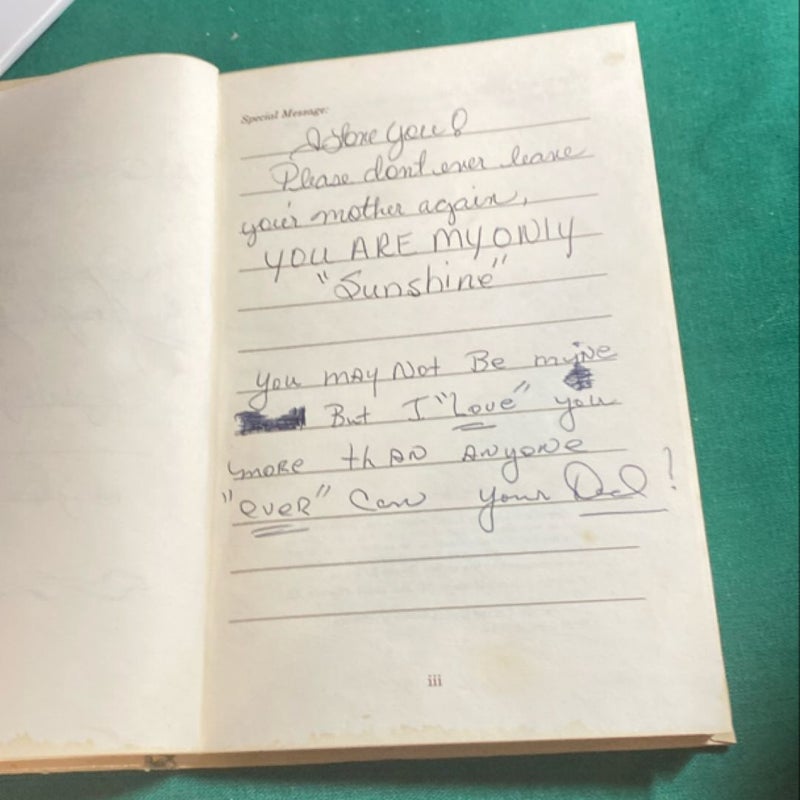 Special Message:
I Love you!
Please don't ever leave
your mother again,
YOU ARE MY ONlY
"Sunshine"
you mAy Not Be miNe
But I "Love" you
moRe thAN ANyoNe
"eveR" Can your Dad!
iii